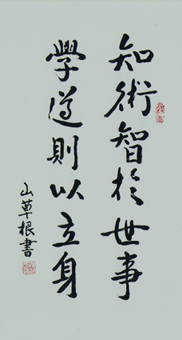 知術智於世事
學道則以立身
山草根書